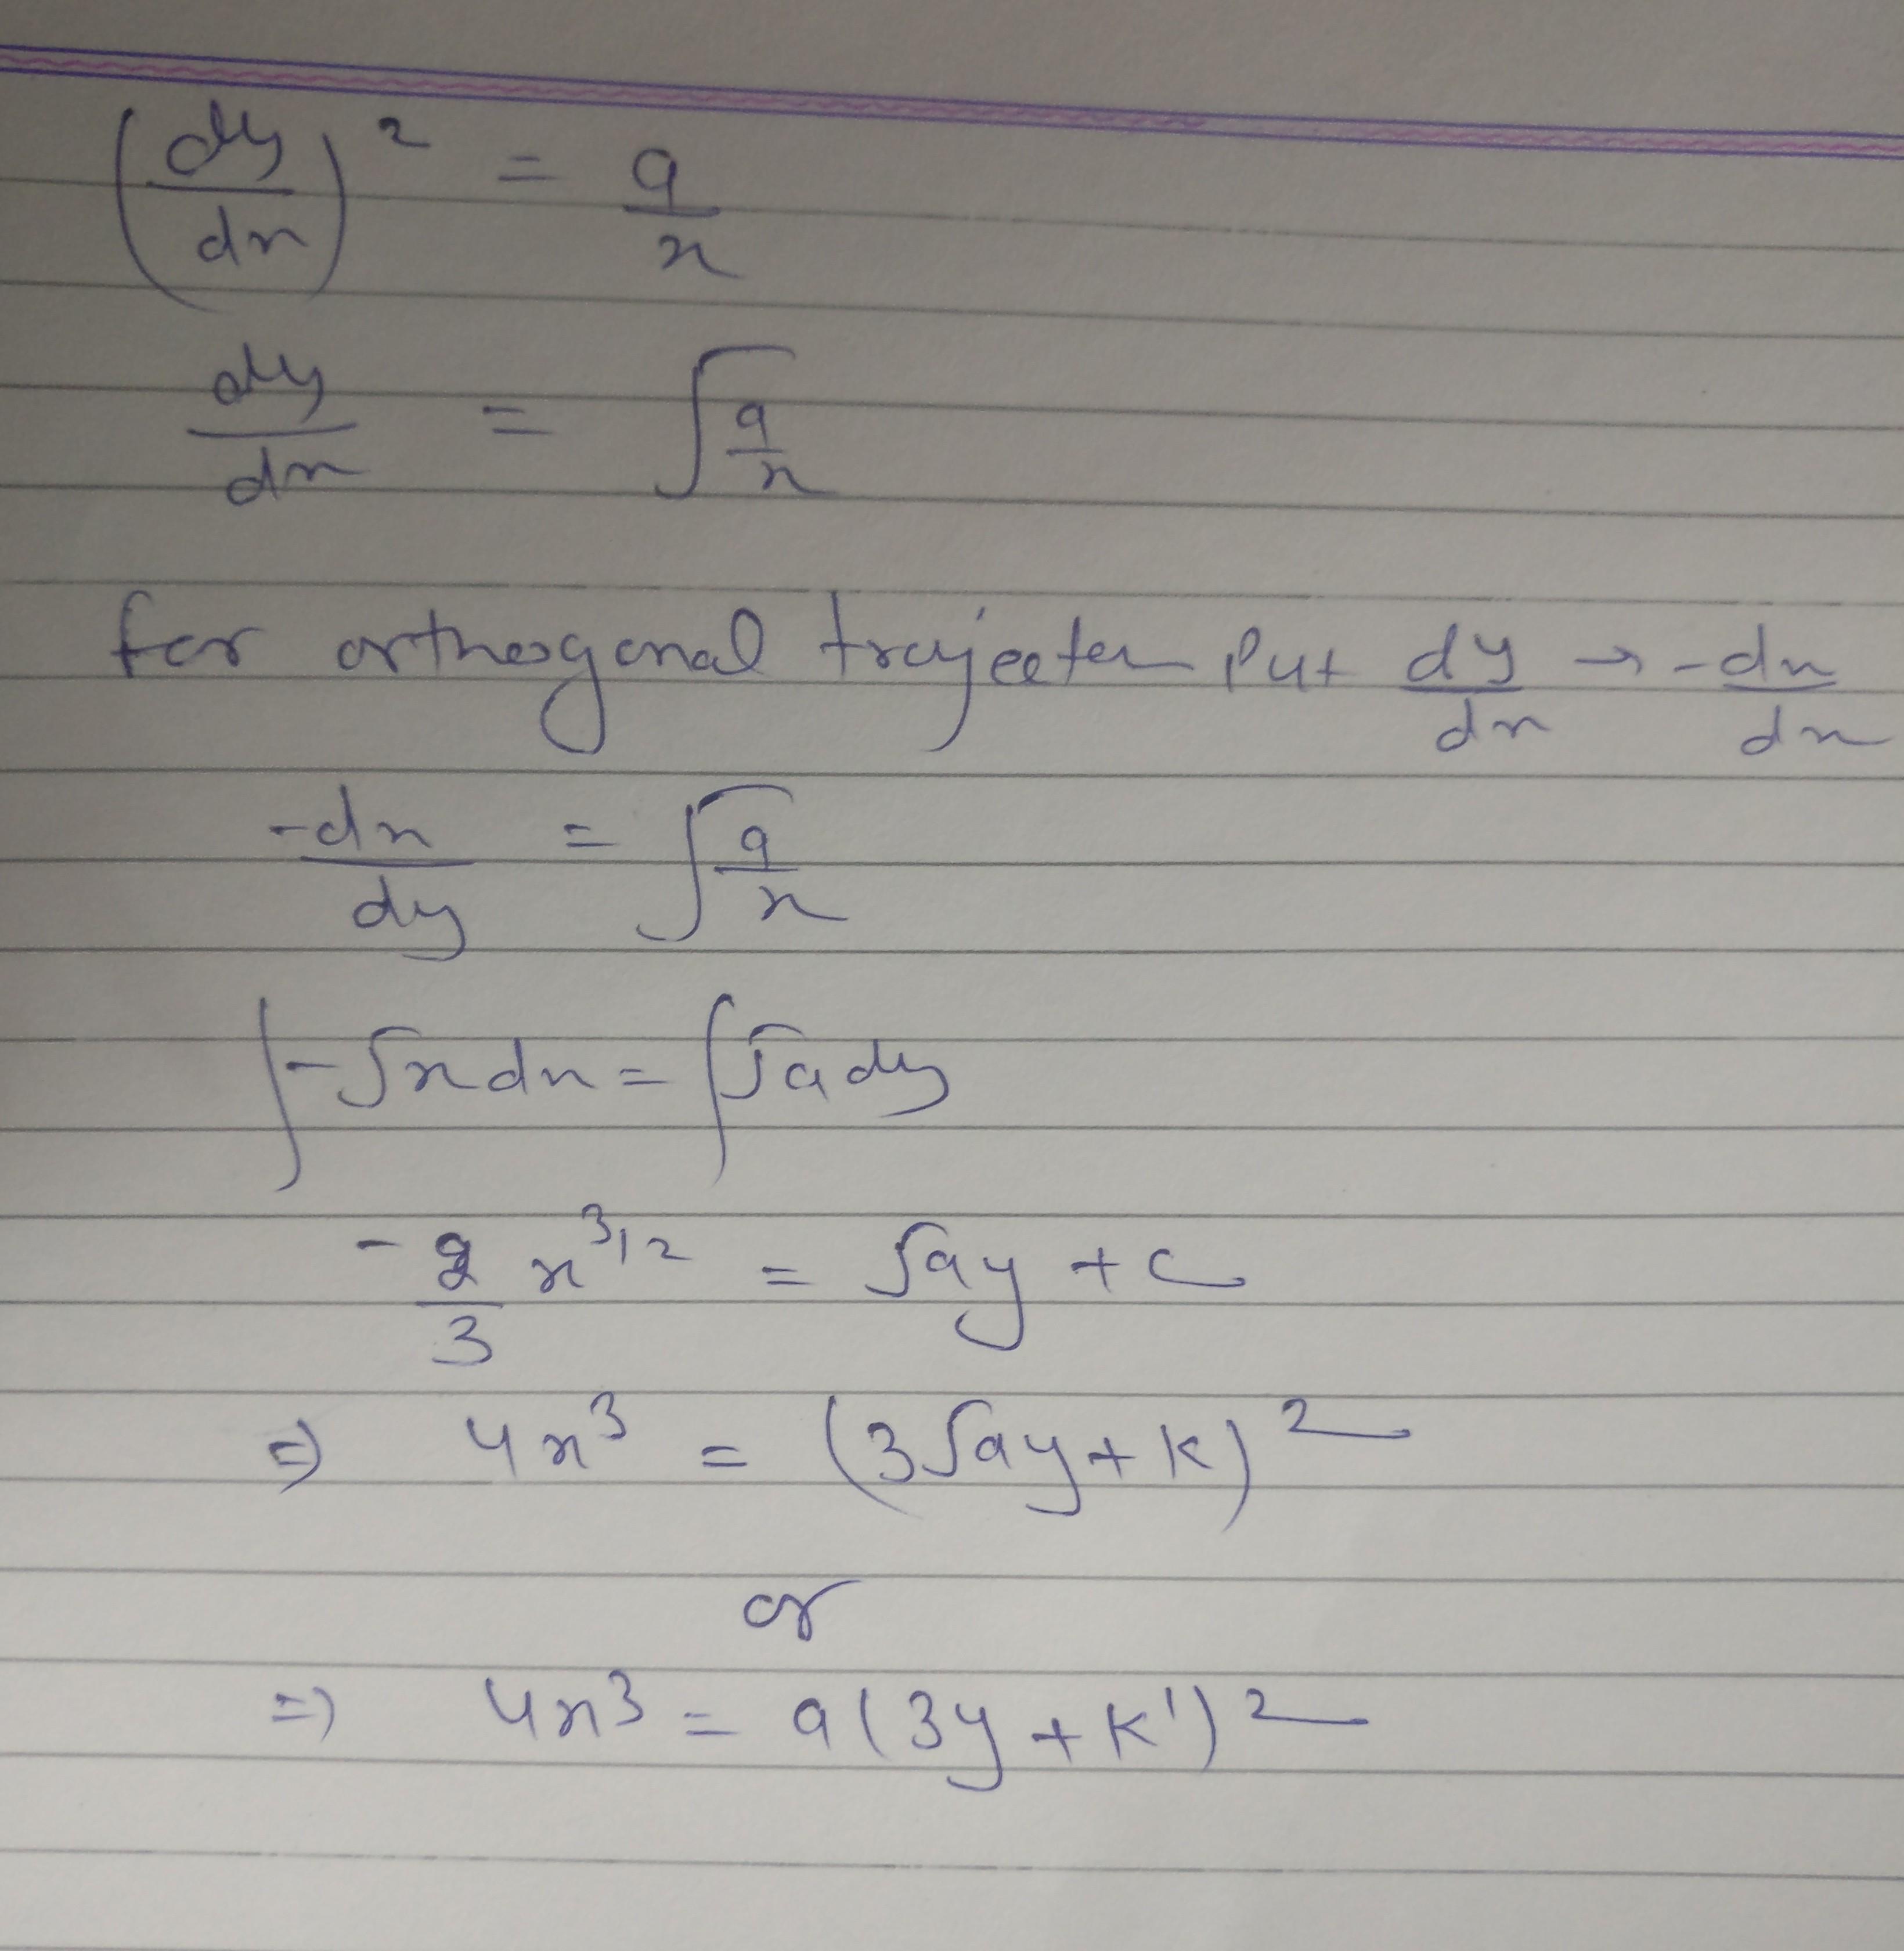 (dy/dx)² = a/x
dy/dx = √(a/x)
for orthogonal trajecter Put dy/dx → -dx/dx
-dx/dy = √(a/x)
∫-√x dx = ∫√a dy
-2/3 x^3/2 = √ay + c
⇒ 4x³ = (3√ay + k)²
or
⇒ 4x³ = a(3y + k')²